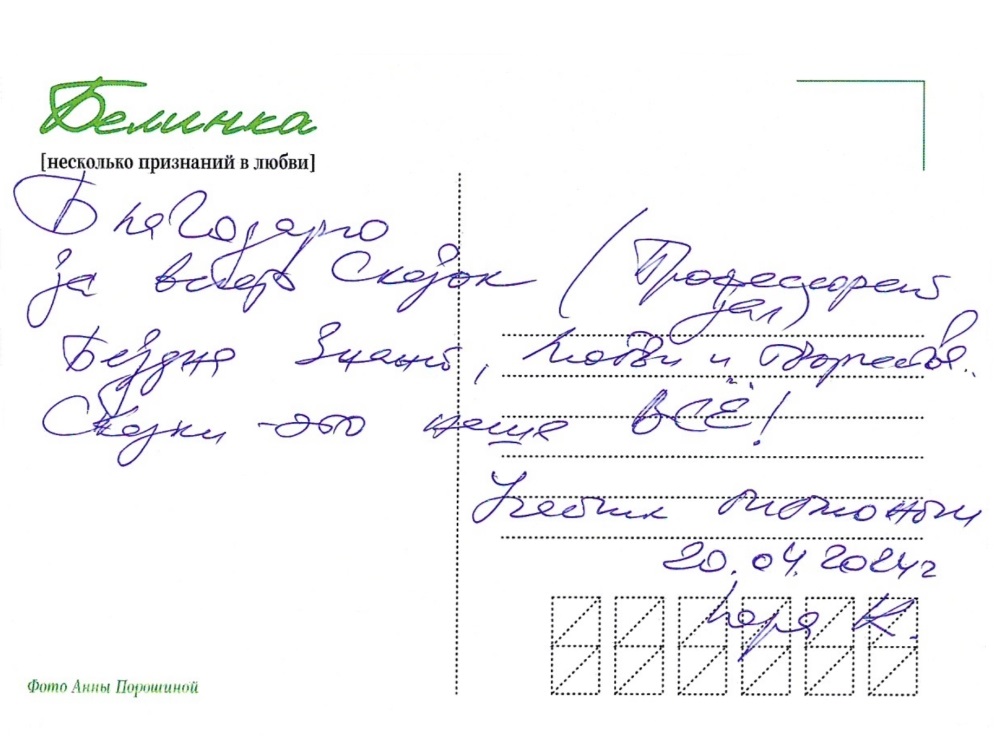 Белинка
[несколько признаний в любви]
Благодарю
за вечер Сказок (Профессорский
зал)
Бездна Знаний, Любви и Творчества..
Сказки - это наше ВСЁ!
Учебник
20.04.2024г
Лара К.
Фото Анны Порошиной